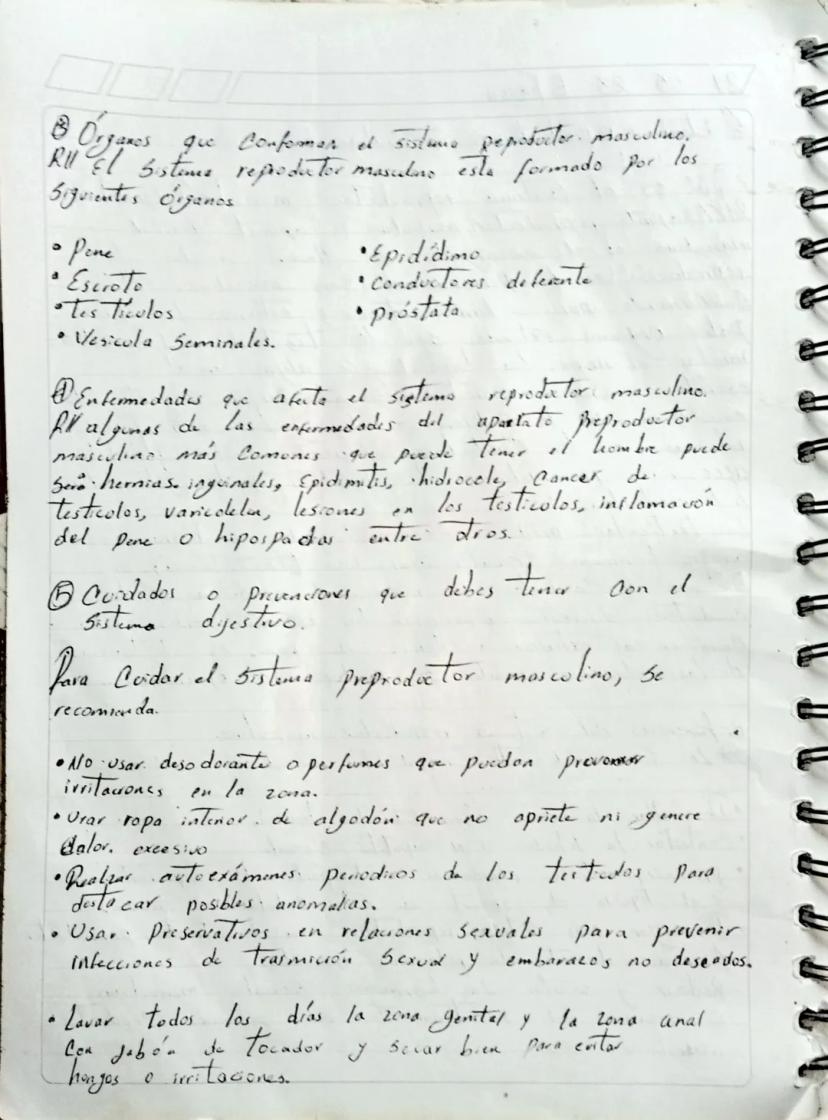 ③ Órganos que conforman el sistema reproductor masculino.
R// El sistema reproductor masculino esta formado por los
siguientes órganos
• Pene
• Escroto
• Testículos
• Vesicula seminales.
• Epidídimo
• conductores deferente
• próstata
④ Enfermedades que afecta el sistema reproductor masculino.
R// algunas de las enfermedades del aparato preproductor
masculino más comunes que puede tener el hombre puede
será hernias inguinales, Epidimitis, hidrocele, Cancer de
testícolos, varicolelen, lesiones en los testículos, inflamación
del pene o hipospadas entre otros.
⑤ Cuidados o prevenciones que debes tener con el
sistema dijestivo.
Para Cuidar el sistema preproductor masculino, se
recomienda.
• No usar desodorante o perfumes que puedan
irritaciones en la zona.
• Urar ropa interior de algodón que no apriete ni genere
Calor excesivo
• Realzar autoexámenes periodicos de los testiculos para
destacar posibles anomalias.
• Usar Preservativos en relaciones sexuales para prevenir
infecciones de trasmición sexual y embarazos no deseados.
• Lavar todos los días la zona genital y la zona anal
con jabón de tocador y secar bien para evitar
hongos o irritaciones.